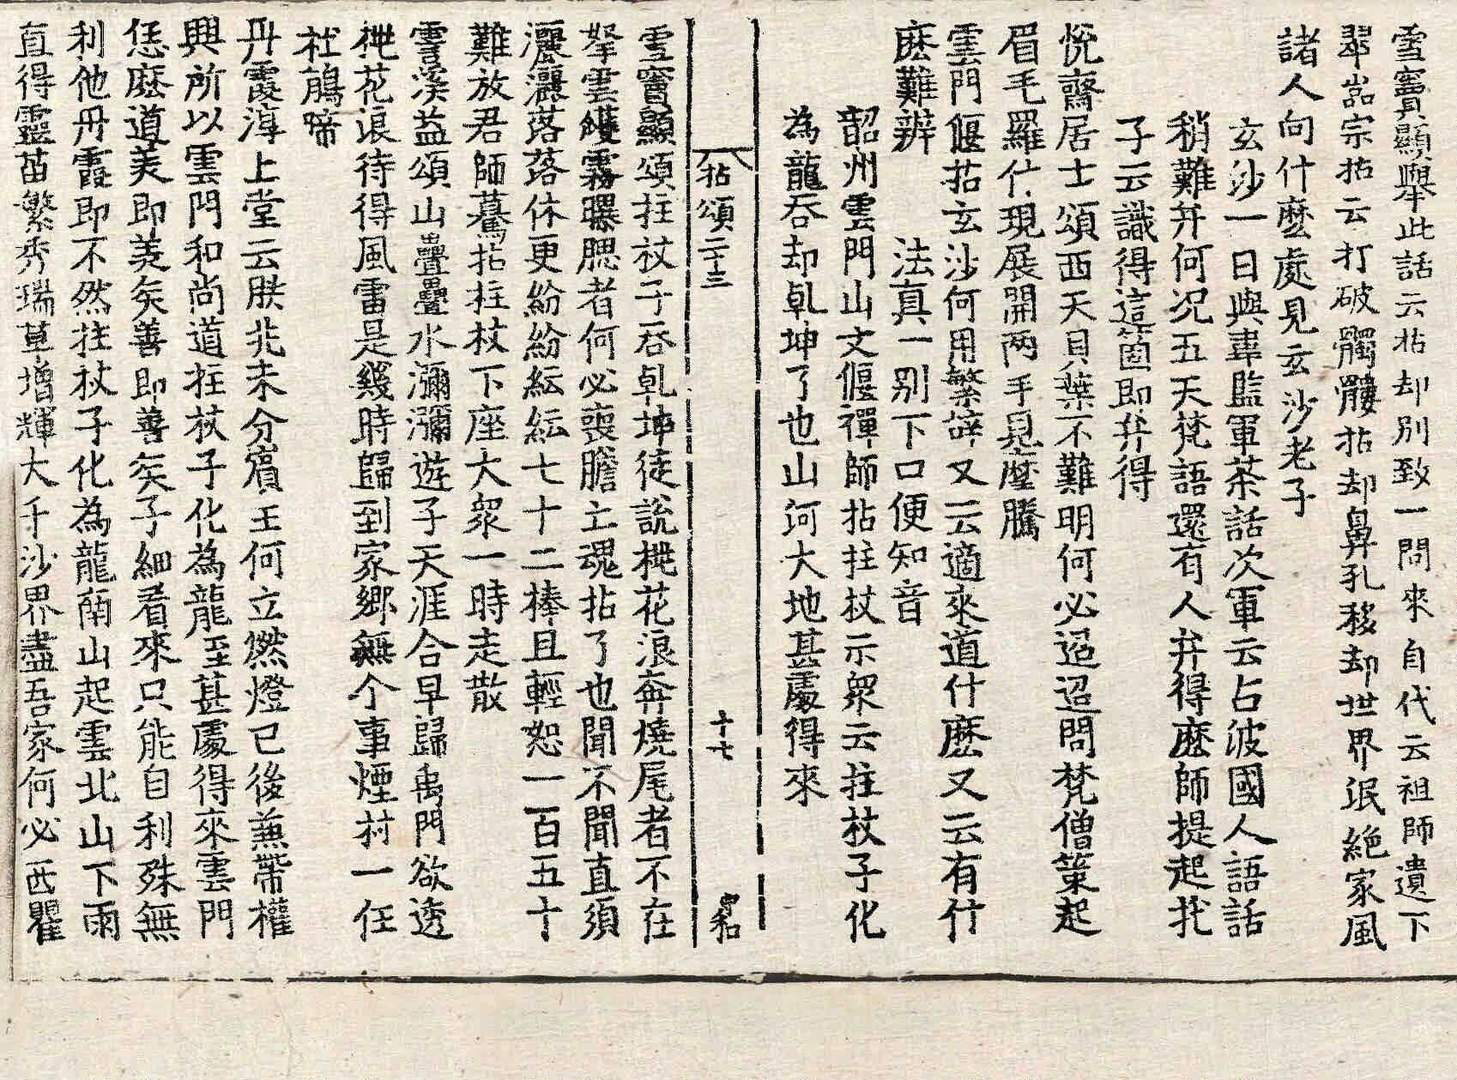 雪竇顯舉此話云拈却別致一問來自代云祖師遺下
翠嵓宗拈云打破髑髏拈却鼻孔移却世界泯絶家風
諸人向什麽處見玄沙老子
玄沙一日與韋監軍茶話次軍云占波國人語話
稍難弁何況五天梵語還有人弁得麽師提起托
子云識得這箇即弁得
悅齋居士頌西天貝葉不難明何必迢迢問梵僧策起
眉毛羅什現展開两手見摩騰
雲門偃拈玄沙何用繁辝又云適來道什麽又云有什
麽難辨　法真一别下口便知音
韶州雲門山文偃禪師拈拄杖示衆云拄杖子化
為龍吞却乹坤了也山河大地甚處得來
拈頌二十三　十七　宗和
雪竇顯頌拄杖子吞乹坤徒說桃花浪奔燒尾者不在
拏雲攫霧曝腮者何必喪膽亡魂拈了也聞不聞直須
灑灑落落休更紛紛紜紜七十二棒且輕恕一百五十
難放君師驀拈拄杖下座大衆一時走散
雲溪益頌山疊疊水瀰瀰遊子天涯合早歸禹門欲透
桃花浪待得風雷是幾時歸到家鄉無个事煙村一任
杜鵑啼
丹霞淳上堂云朕兆未分賓王何立燃燈已後兼帶權
興所以雲門和尚道拄杖子化為龍至甚處得來雲門
恁麽道美即美矣善即善矣子細看來只能自利殊無
利他丹霞即不然拄杖子化為龍南山起雲北山下雨
直得靈苗繁秀瑞草增輝大千沙界盡吾家何必西瞿